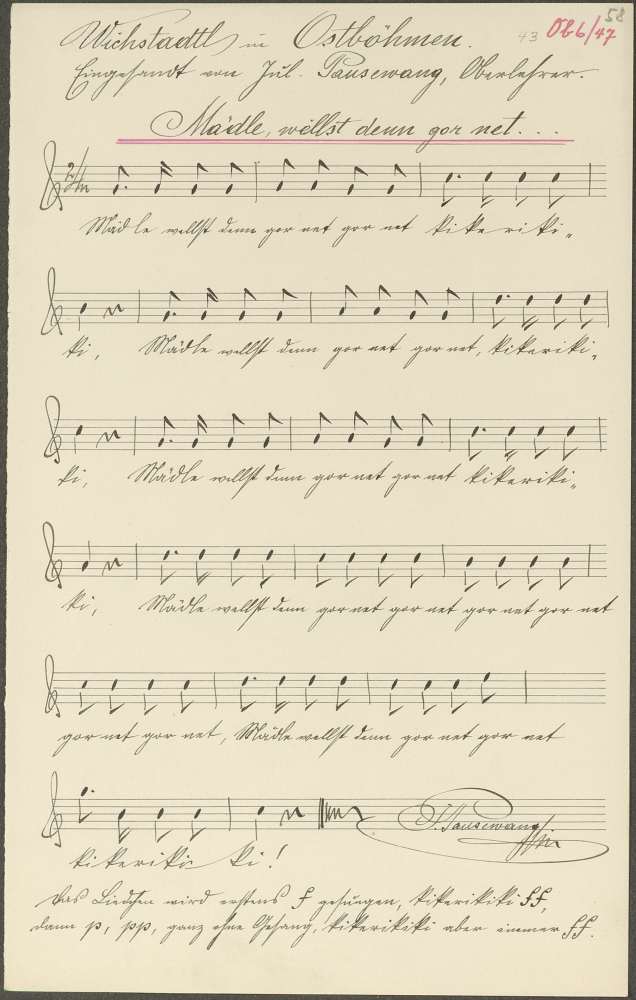 58
43 Ob6/47
Wichstadtl in Ostböhmen.
Eingesandt von Jul. Pausewang, Oberlehrer.
Mädle, wellst denn gor net. . .
2/4
Mädle wellst denn gor net gor net kikeriki-
ki, Mädle wellst denn gor net gor net, kikeriki-
ki, Mädle wellst denn gor net gor net kikeriki-
ki, Mädle wellst denn gor net gor net gor net gor net
gor net gor net, Mädle wellst denn gor net gor net
kikeriki ki!
J. Pausewang
Das Liedchen wird erstens f gesungen, kikerikiki ff,
dann p, pp, ganz ohne Gesang, kikerikiki aber immer ff.